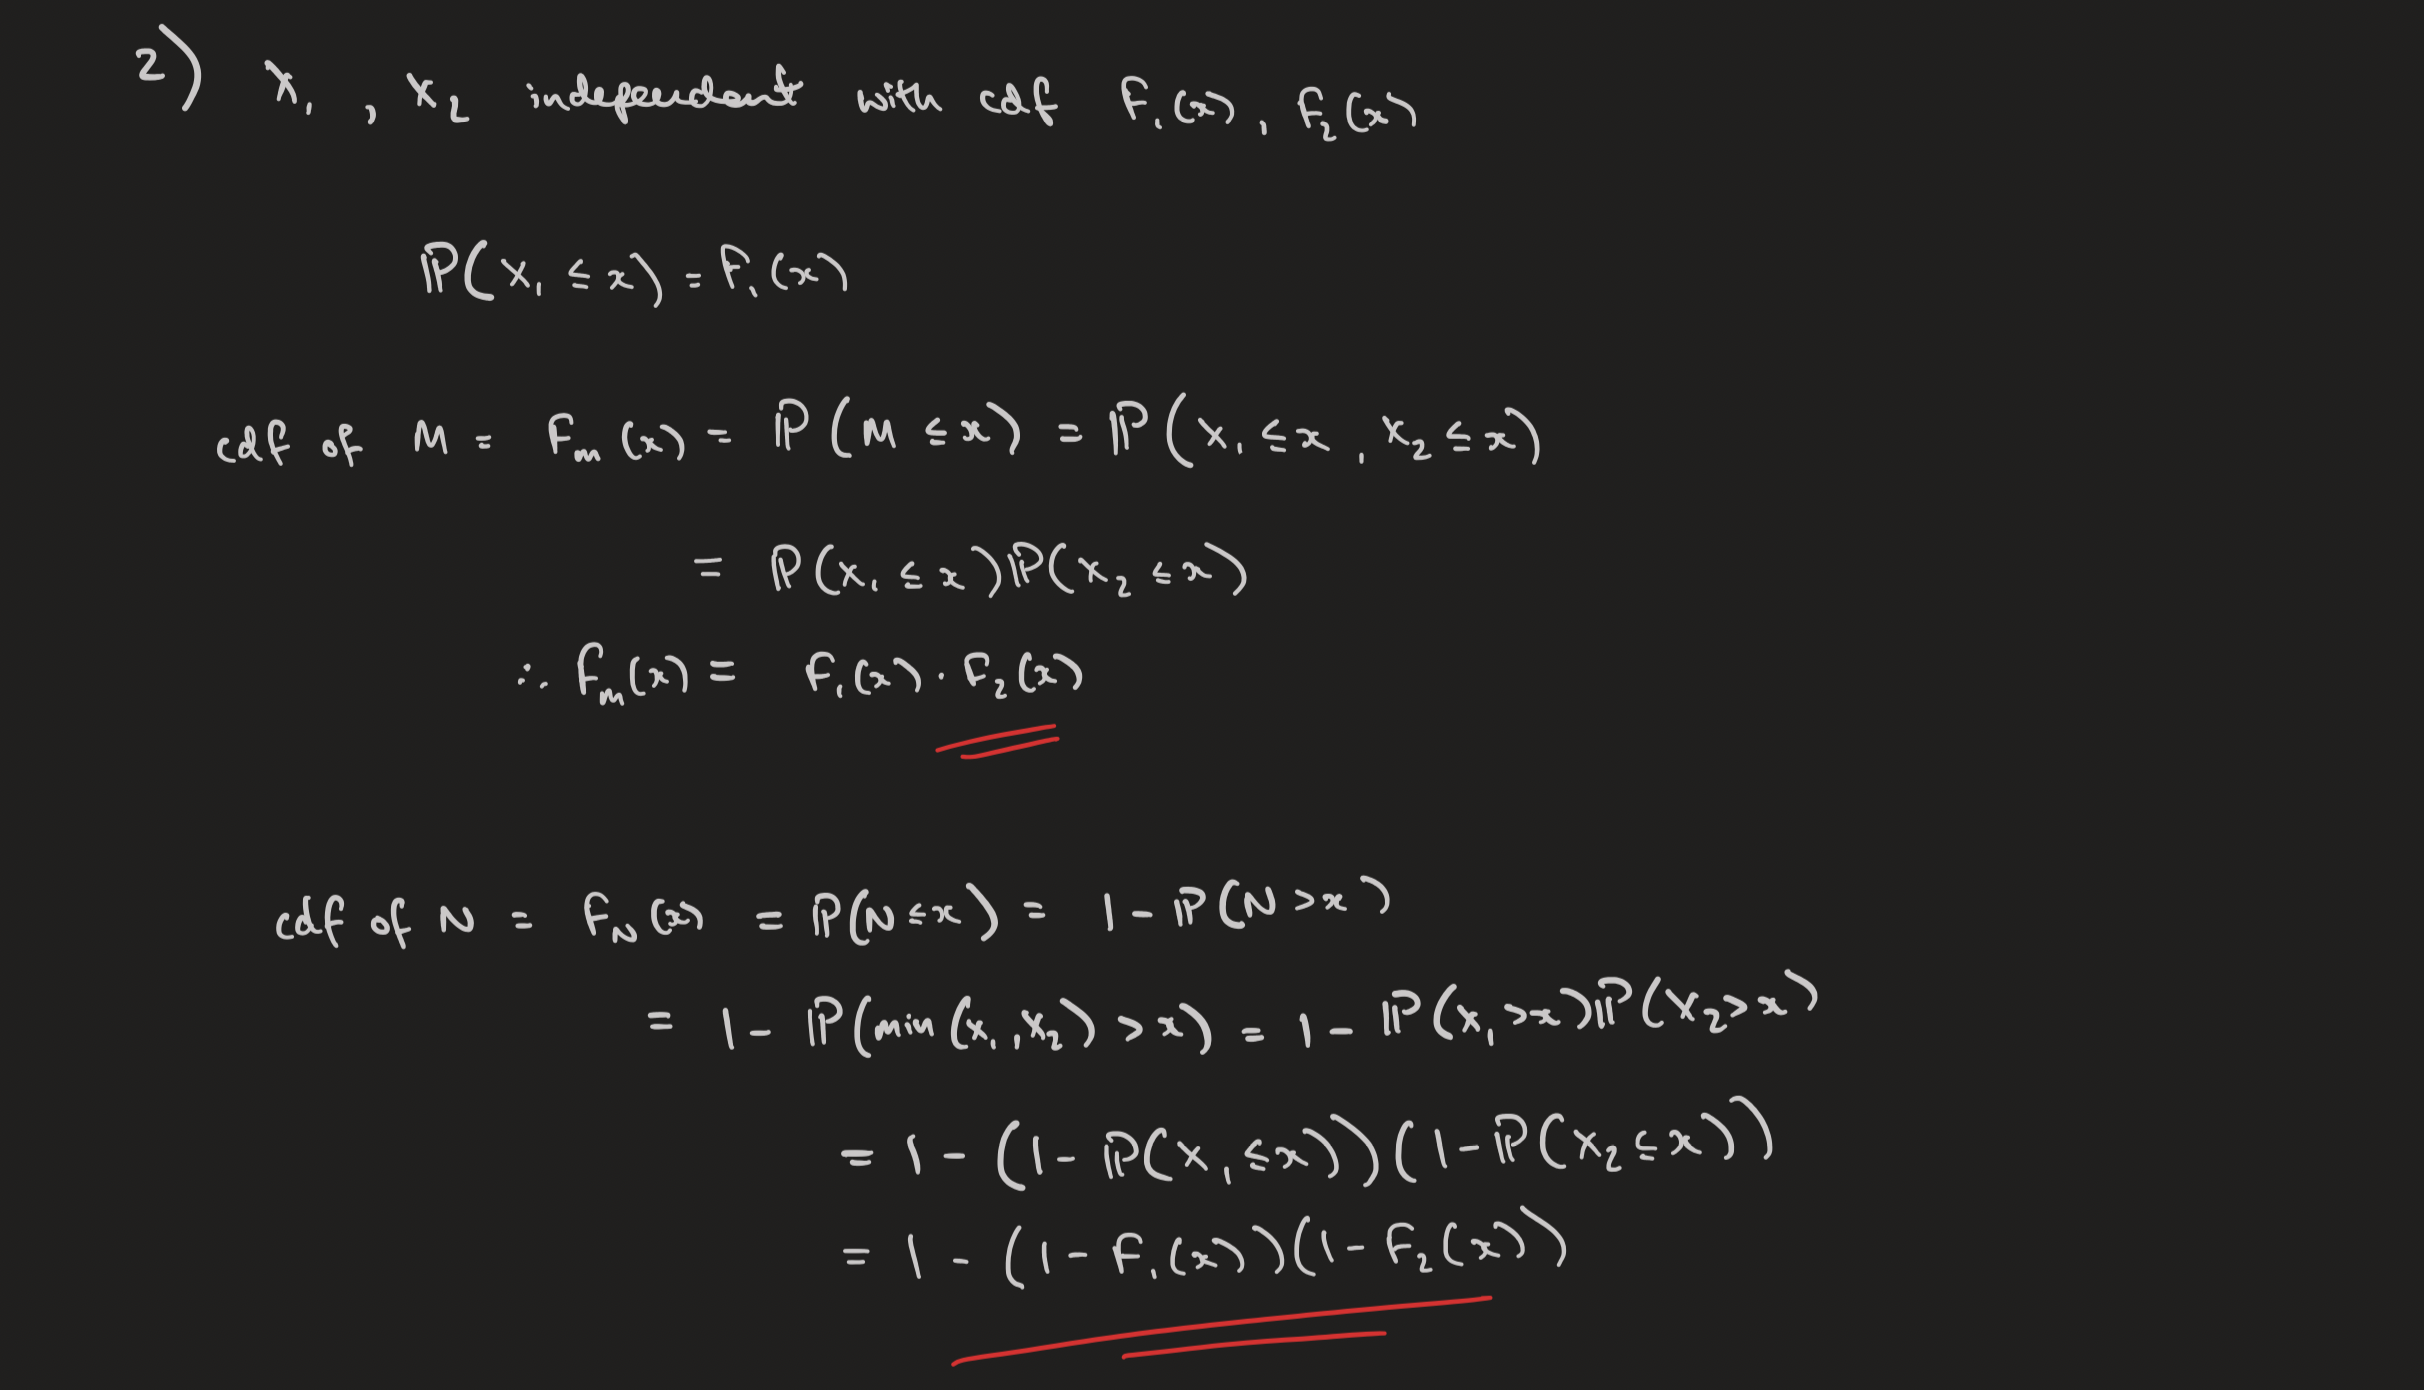 2) X₁ , X₂ independent with cdf F₁(x), F₂(x)
ℙ(X₁ ≤ x) = F₁(x)
cdf of M = Fₘ(x) = ℙ(M ≤ x) = ℙ(X₁ ≤ x, X₂ ≤ x)
= ℙ(X₁ ≤ x)ℙ(X₂ ≤ x)
∴ Fₘ(x) = F₁(x) · F₂(x)
cdf of N = F_N(x) = ℙ(N ≤ x) = 1 - ℙ(N > x)
= 1 - ℙ(min(X₁, X₂) > x) = 1 - ℙ(X₁ > x)ℙ(X₂ > x)
= 1 - (1 - ℙ(X₁ ≤ x))(1 - ℙ(X₂ ≤ x))
= 1 - (1 - F₁(x))(1 - F₂(x))